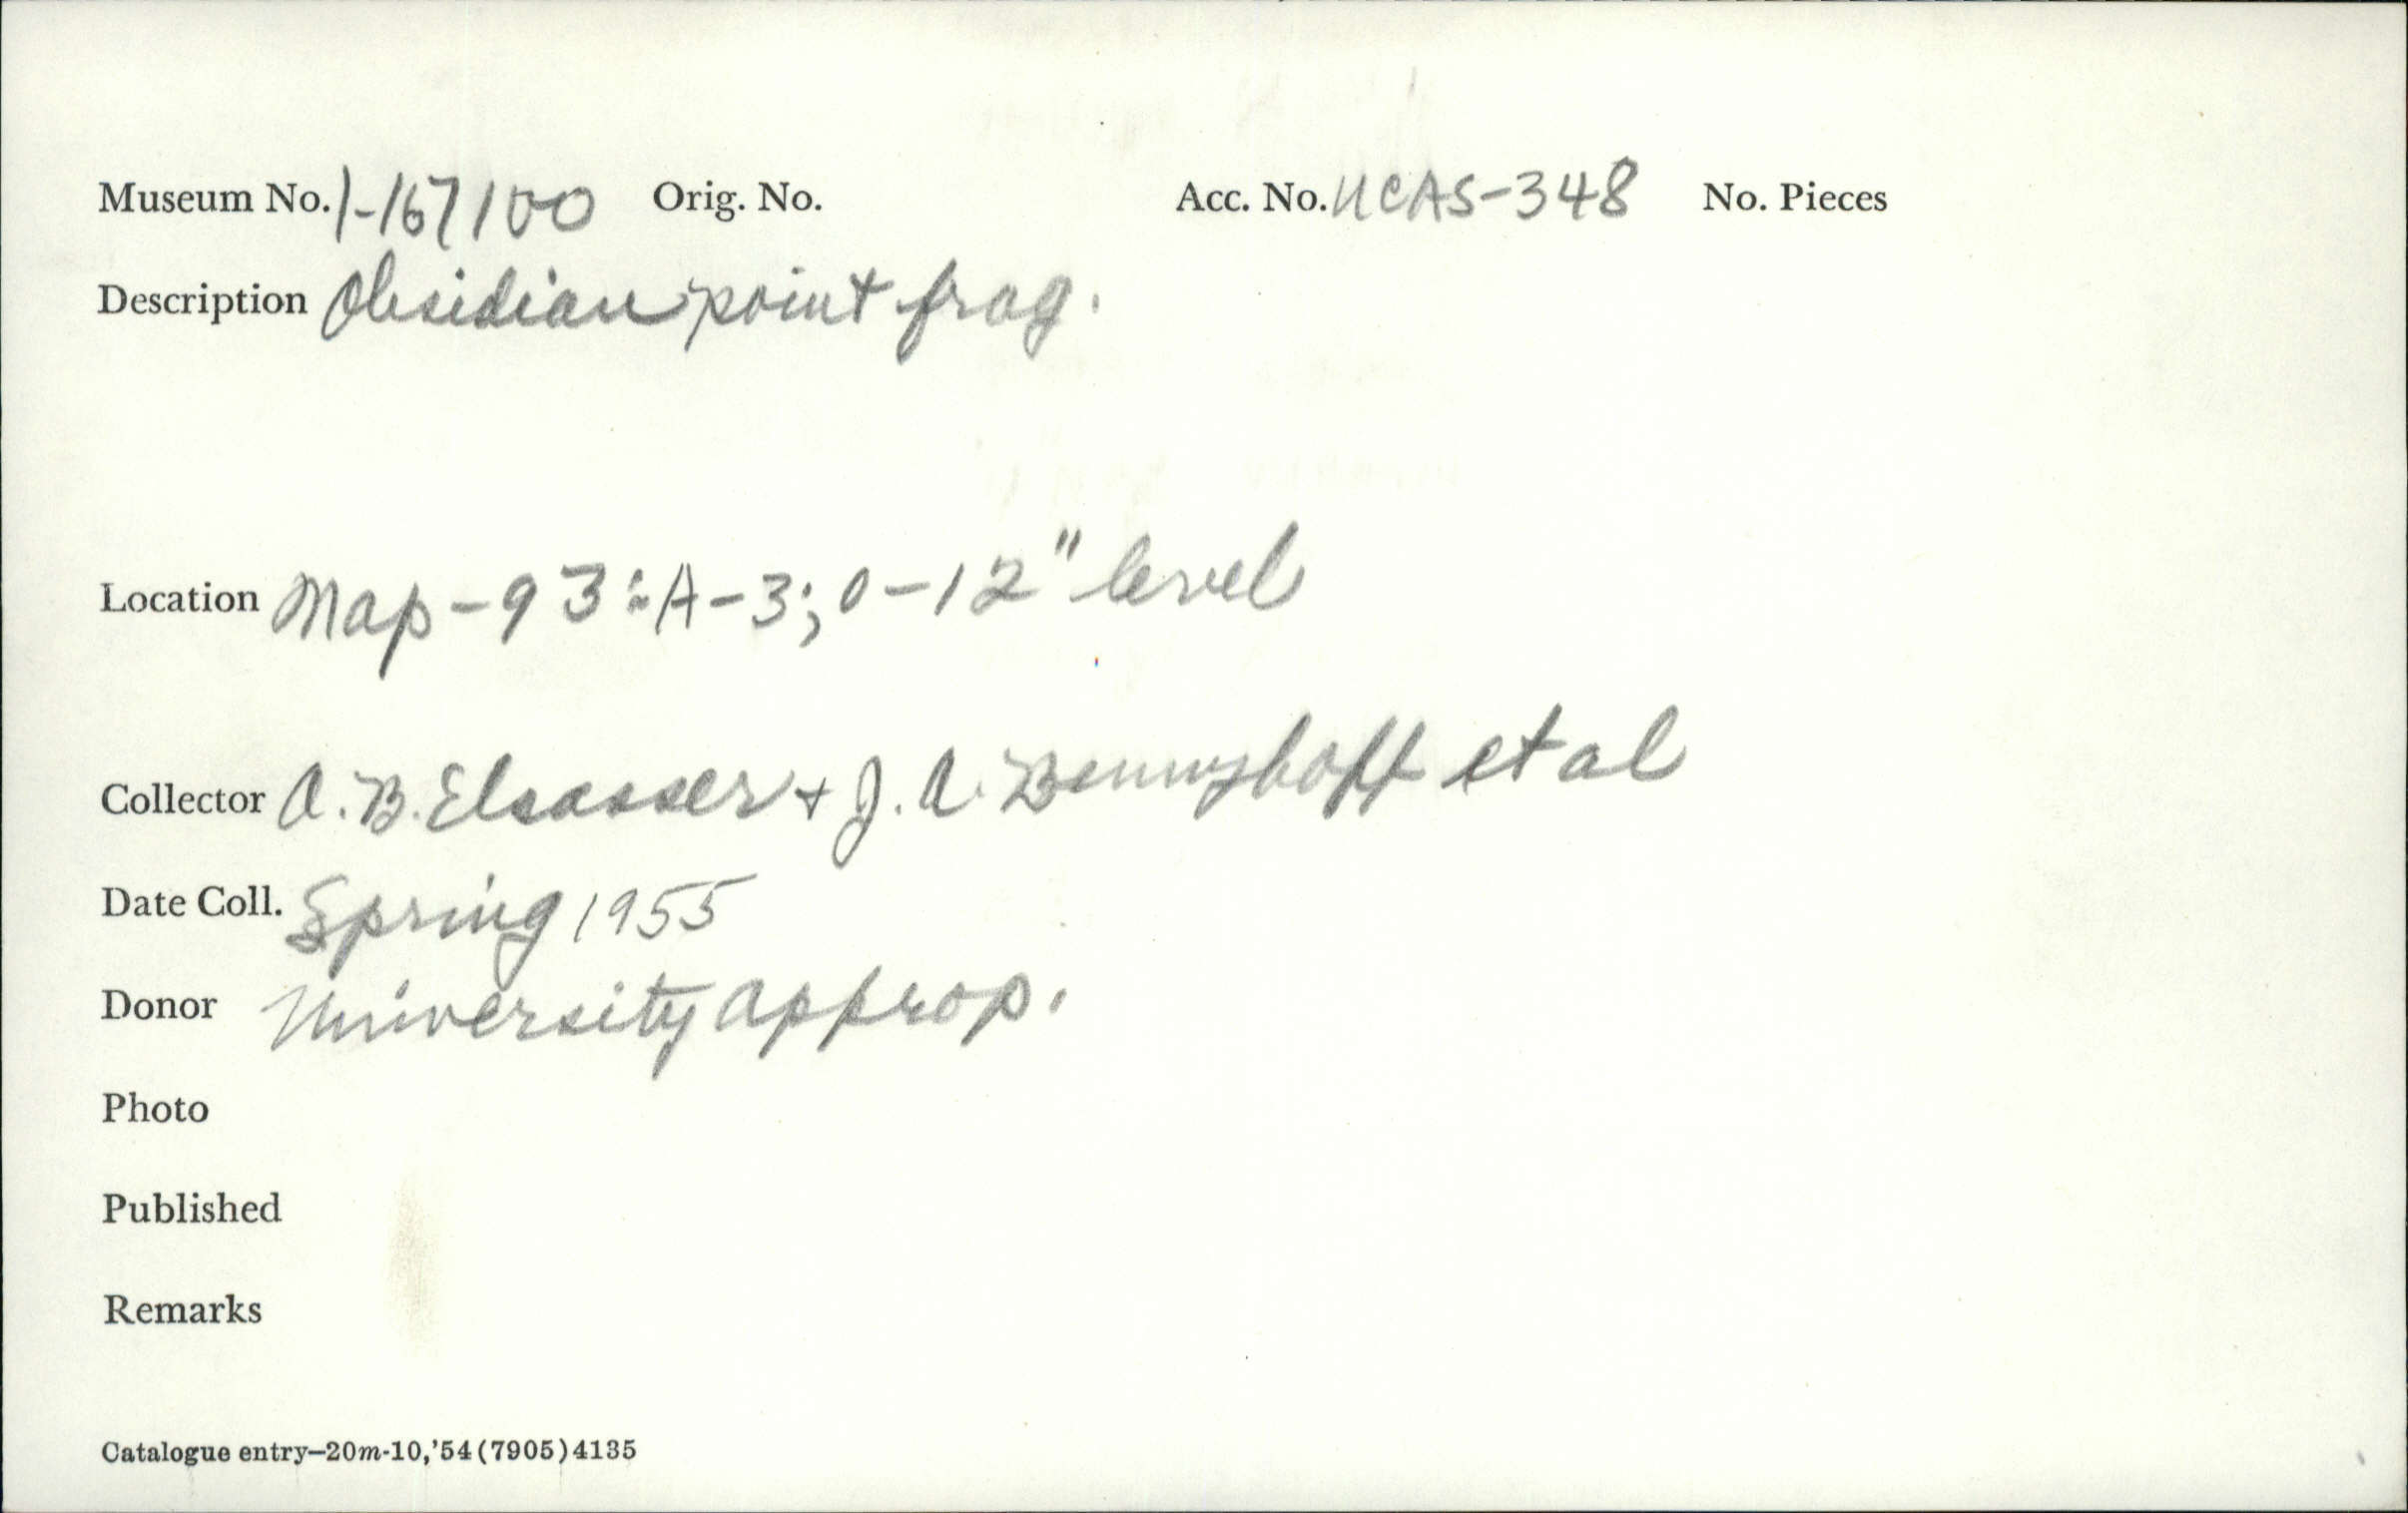 Museum No. 1-167100 Orig. No. Acc. No. UCAS-348 No. Pieces
Description Obsidian point frag.
Location Map-93:A-3; 0-12" level
Collector A. B. Elsasser + J. A. Bennyhoff et al
Date Coll. Spring 1955
Donor University approp.
Photo
Published
Remarks
Catalogue entry—20m-10,'54(7905)4135